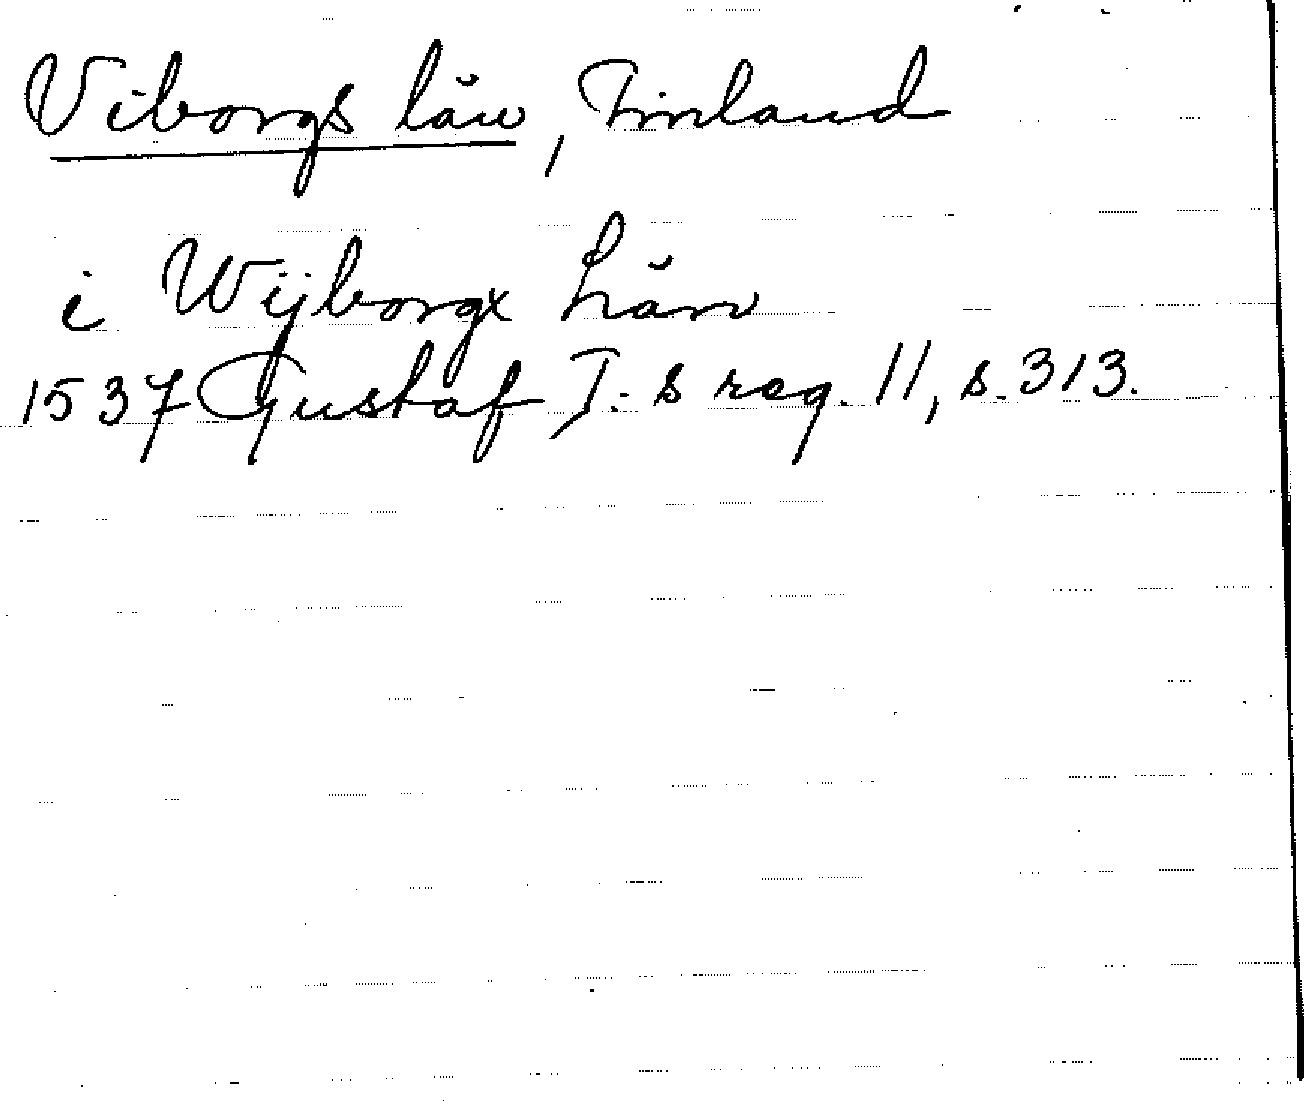 Viborgs län, Finland
i Wijborgx Län
1537 Gustaf I:s reg. 11, s. 313.